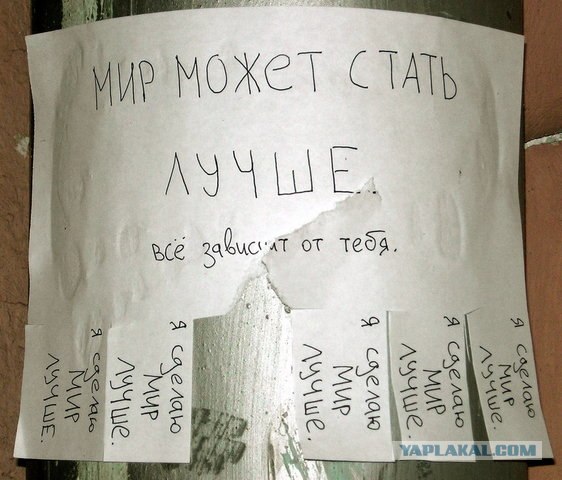 МИР МОЖЕТ СТАТЬ
ЛУЧШЕ...
всё зависит от тебя.
я сделаю
МИР
ЛУЧШЕ.
я сделаю
МИР
ЛУЧШЕ.
я сделаю
МИР
ЛУЧШЕ.
я сделаю
МИР
ЛУЧШЕ.
я сделаю
МИР
ЛУЧШЕ.
YAPLAKAL.COM